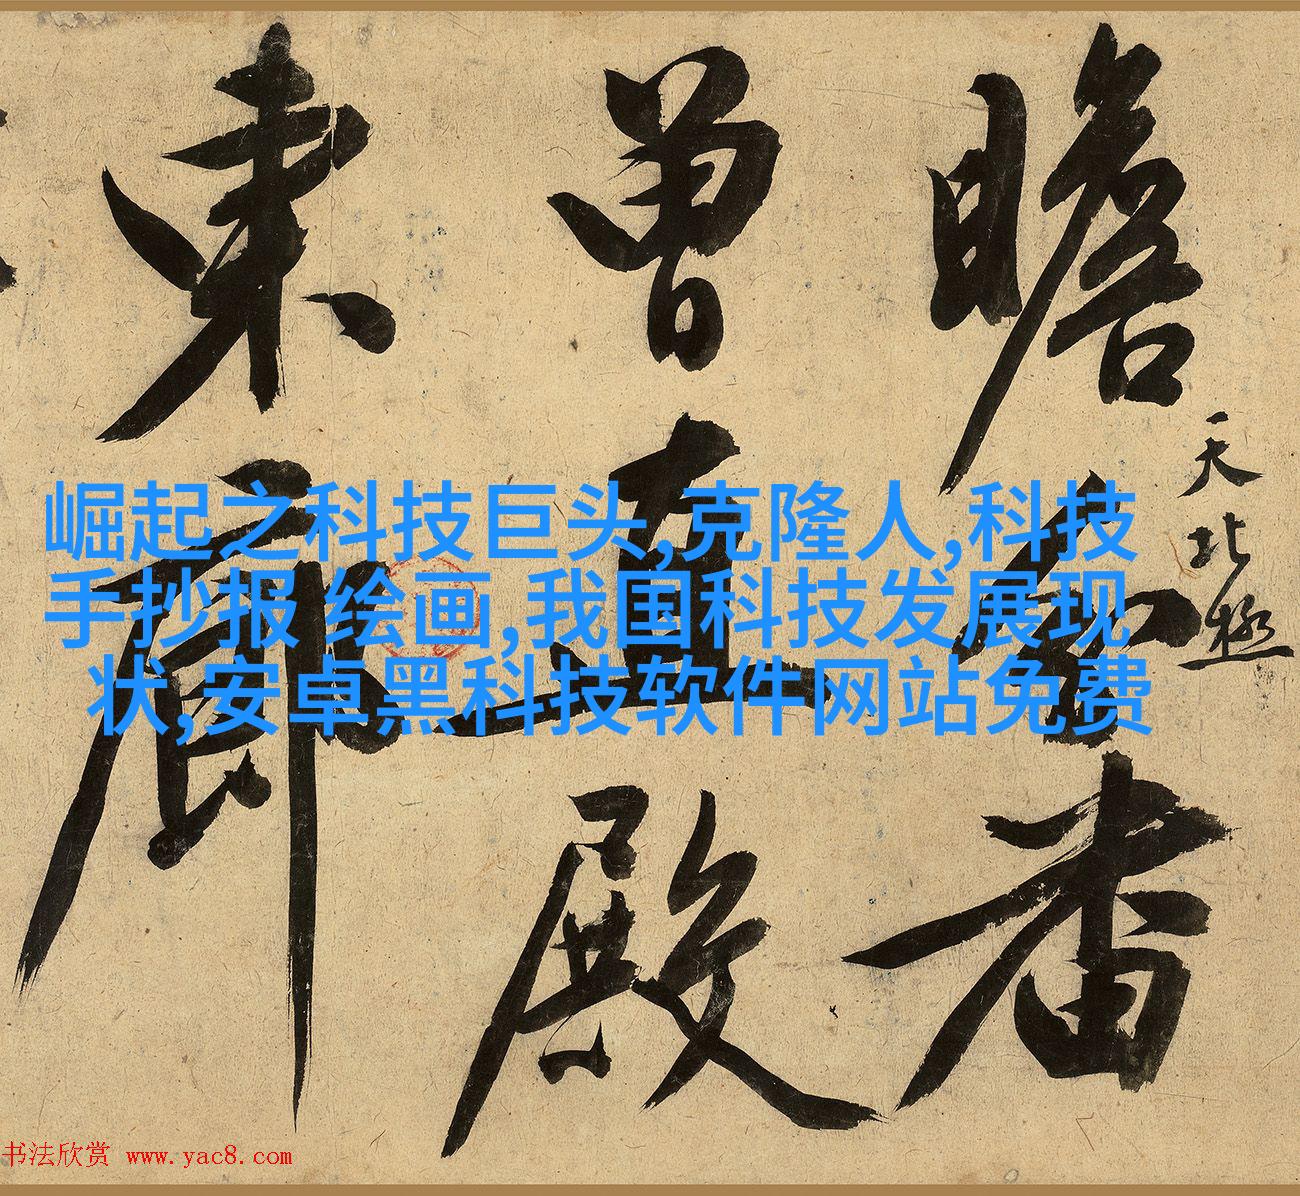 瞻
天北極
曾直殿
東廊
崛起之科技巨头,克隆人,科技
手抄报 绘画,我国科技发展现
状,安卓黑科技软件网站免费
书法欣赏 www.yac8.com